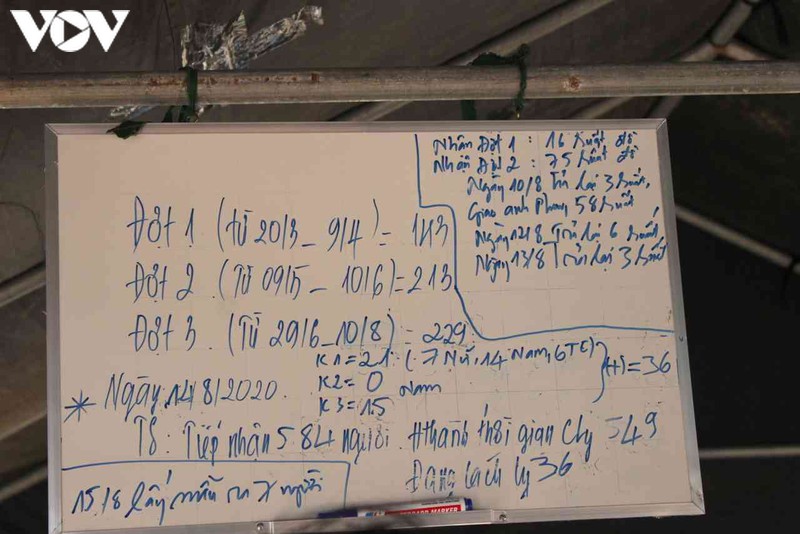 VOV
Nhận Đợt 1 : 16 suất đồ
Nhận Đợt 2 : 75 suất đồ
Ngày 10/8 Trả lại 3 suất,
Giao anh Phong 58 suất
Ngày 12/8 Trả lại 6 suất
Ngày 13/8 Trả lại 3 suất
Đợt 1 (từ 20/3 _ 9/4) = 143
Đợt 2 (Từ 09/5 _ 10/6) = 213
Đợt 3 (Từ 29/6 _ 10/8) = 229
K1 = 21 (7 Nữ, 14 Nam, 6 TE)
* Ngày 14/8/2020. K2 = 0 = 36
K3 = 15 Nam
TS : Tiếp nhận 584 người. Hthành thời gian cly 549
Đang cách ly 36
15/8 lấy mẫu 7 người
MARKER